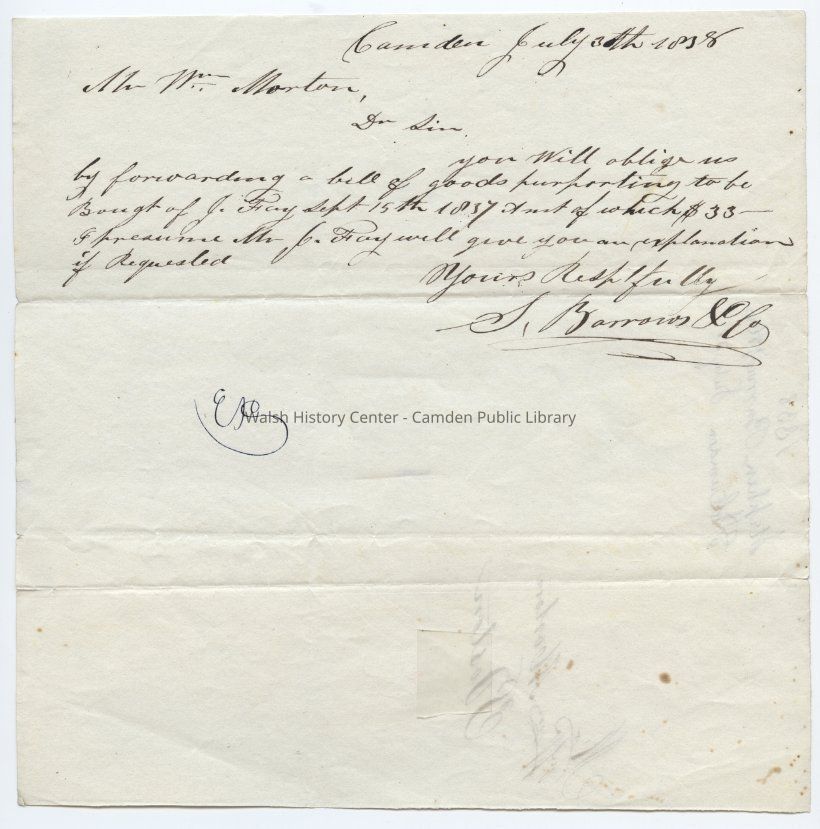 Camden July 30th 1838
Mr Wm Morton,
Dr Sir,
you Will oblige us
by forwarding a bill of goods purporting to be
Bougt of J. Fay Sept 15th 1837 Amt of which $33—
I presume Mr J. Fay will give you an explanation
if Requested
Yours Resplfully
S. Barrows & Co
Walsh History Center - Camden Public Library